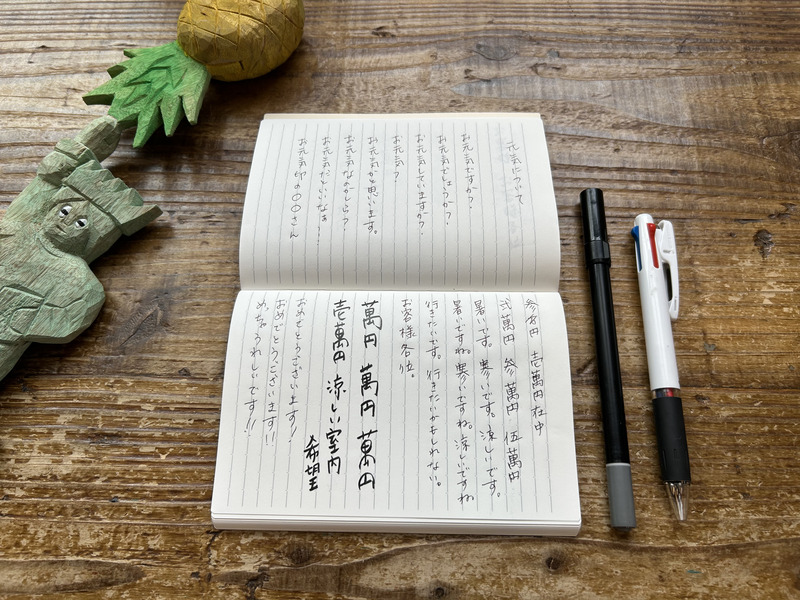 元気について
お元気ですか?
お元気でしょうか?
お元気していますか?
お元気?
お元気かと思います。
お元気なのかしら?
お元気だといいなぁ…
お元気印の〇〇さん
参万円 壱萬円在中
弐萬円 参萬円 伍萬円
暑いです。寒いです。涼しいです。
暑いですね。寒いですね。涼しいですね
行きたいです。行きたいかもしれない。
お客様各位。
萬円 萬円 萬円
壱萬円 涼しい室内
希望
おめでとうございます!
おめでとうございます!!
めっちゃうれしいです!!